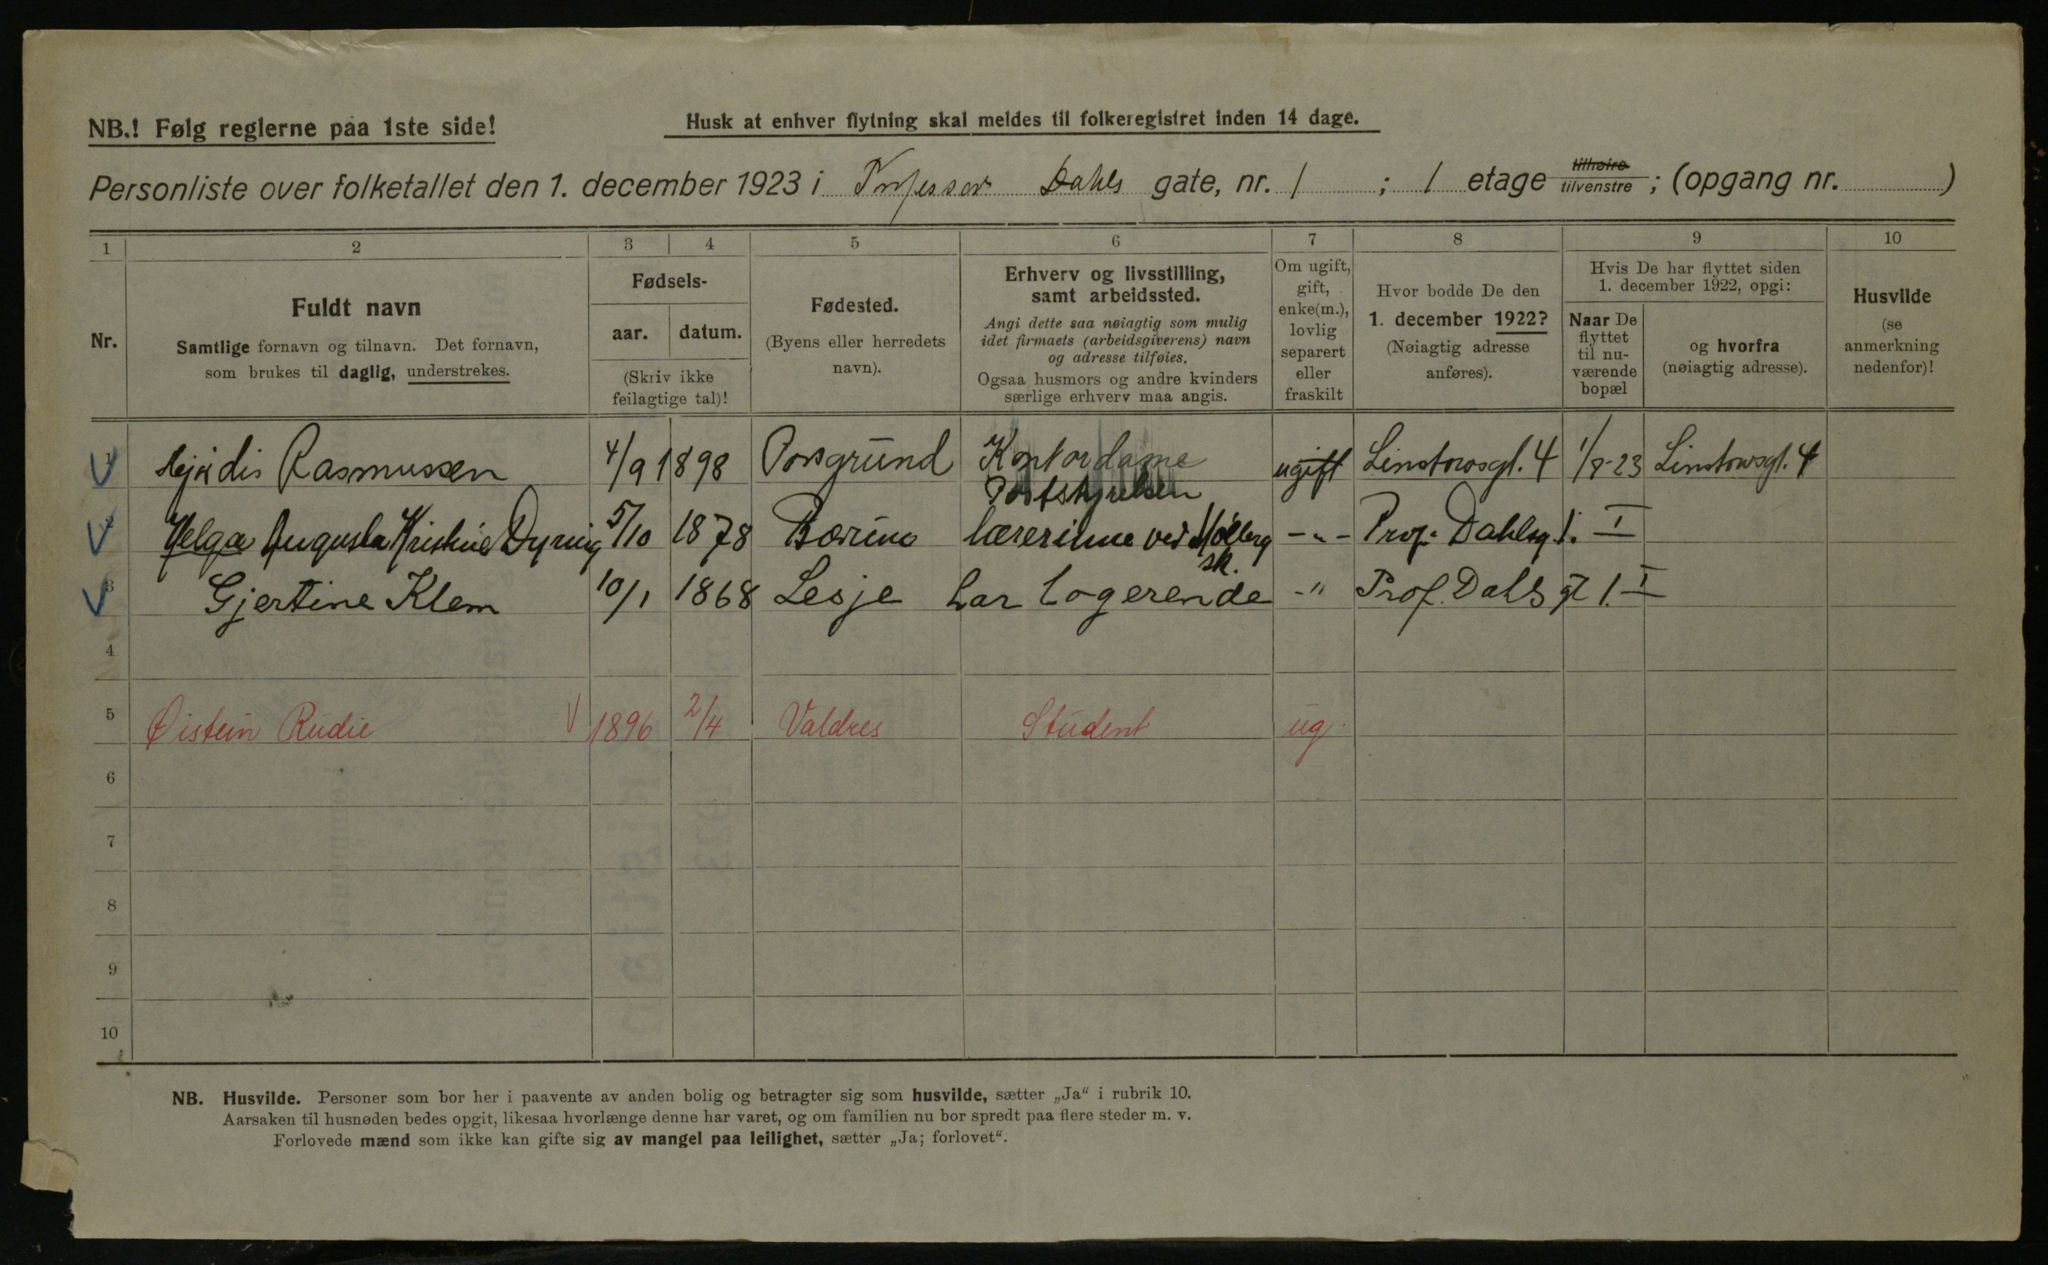 NB.! Følg reglerne paa 1ste side!
Husk at enhver flytning skal meldes til folkeregistret inden 14 dage.
Personliste over folketallet den 1. december 1923 i Professor Dahls gate, nr. 1 ; 1 etage tilhøire tilvenstre ; (opgang nr. )
1 2 3 4 5 6 7 8 9 10
Nr.
Fuldt navn
Samtlige fornavn og tilnavn. Det fornavn,
som brukes til daglig, understrekes.
Fødsels-
aar. datum.
(Skriv ikke
feilagtige tal)!
Fødested.
(Byens eller herredets
navn).
Erhverv og livsstilling,
samt arbeidssted.
Angi dette saa nøiagtig som mulig
idet firmaets (arbeidsgiverens) navn
og adresse tilføies.
Ogsaa husmors og andre kvinders
særlige erhverv maa angis.
Om ugift,
gift,
enke(m.),
lovlig
separert
eller
fraskilt
Hvor bodde De den
1. december 1922?
(Nøiagtig adresse
anføres).
Hvis De har flyttet siden
1. december 1922, opgi:
Naar De
flyttet
til nu-
værende
bopæl
og hvorfra
(nøiagtig adresse).
Husvilde
(se
anmerkning
nedenfor)!
Hjørdis Rasmussen 4/9 1898 Porsgrund Kontordame ugift Linstowsgt. 4 1/8-23 Linstowsgt. 4
Poststyrelsen
2 Helga Augusta Kristine Dyring 5/10 1878 Bærum lærerinne ved -"- Prof. Dahlsg. 1. I
sk.
3 Gjertine Klem 10/1 1868 Lesje har logerende -" Prof. Dahls gt 1. I
4
5 Øistein Rudie 1896 2/4 Valdres Student ug.
6
7
8
9
10
NB. Husvilde. Personer som bor her i paavente av anden bolig og betragter sig som husvilde, sætter „Ja“ i rubrik 10.
Aarsaken til husnøden bedes opgit, likesaa hvorlænge denne har varet, og om familien nu bor spredt paa flere steder m. v.
Forlovede mænd som ikke kan gifte sig av mangel paa leilighet, sætter „Ja; forlovet“.